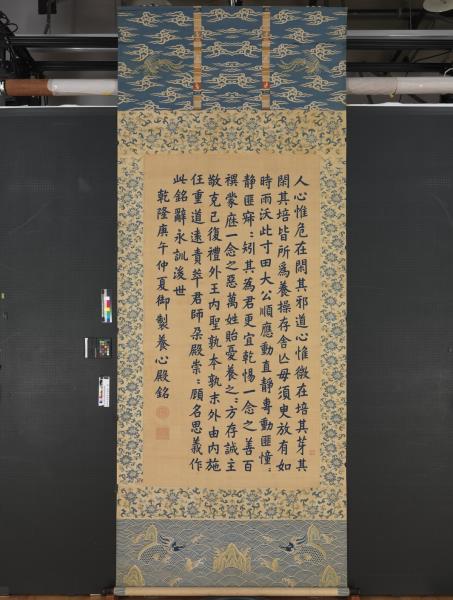 人心惟危在閑其邪道心惟微在培其芽其
閑其培皆所爲養操存舍亾毋須臾放有如
時雨沃此寸田大公順應動直靜專動匪憧〻
靜匪寐〻矧其為君更宜乾惕一念之善百
禩蒙庥一念之惡萬姓貽憂養之〻方存誠主
敬克己復禮外王內聖孰本孰末外由內施
任重道遠責萃君師朶殿崇〻顧名思義作
此銘辭永訓後世
乾隆庚午仲夏御製養心殿銘